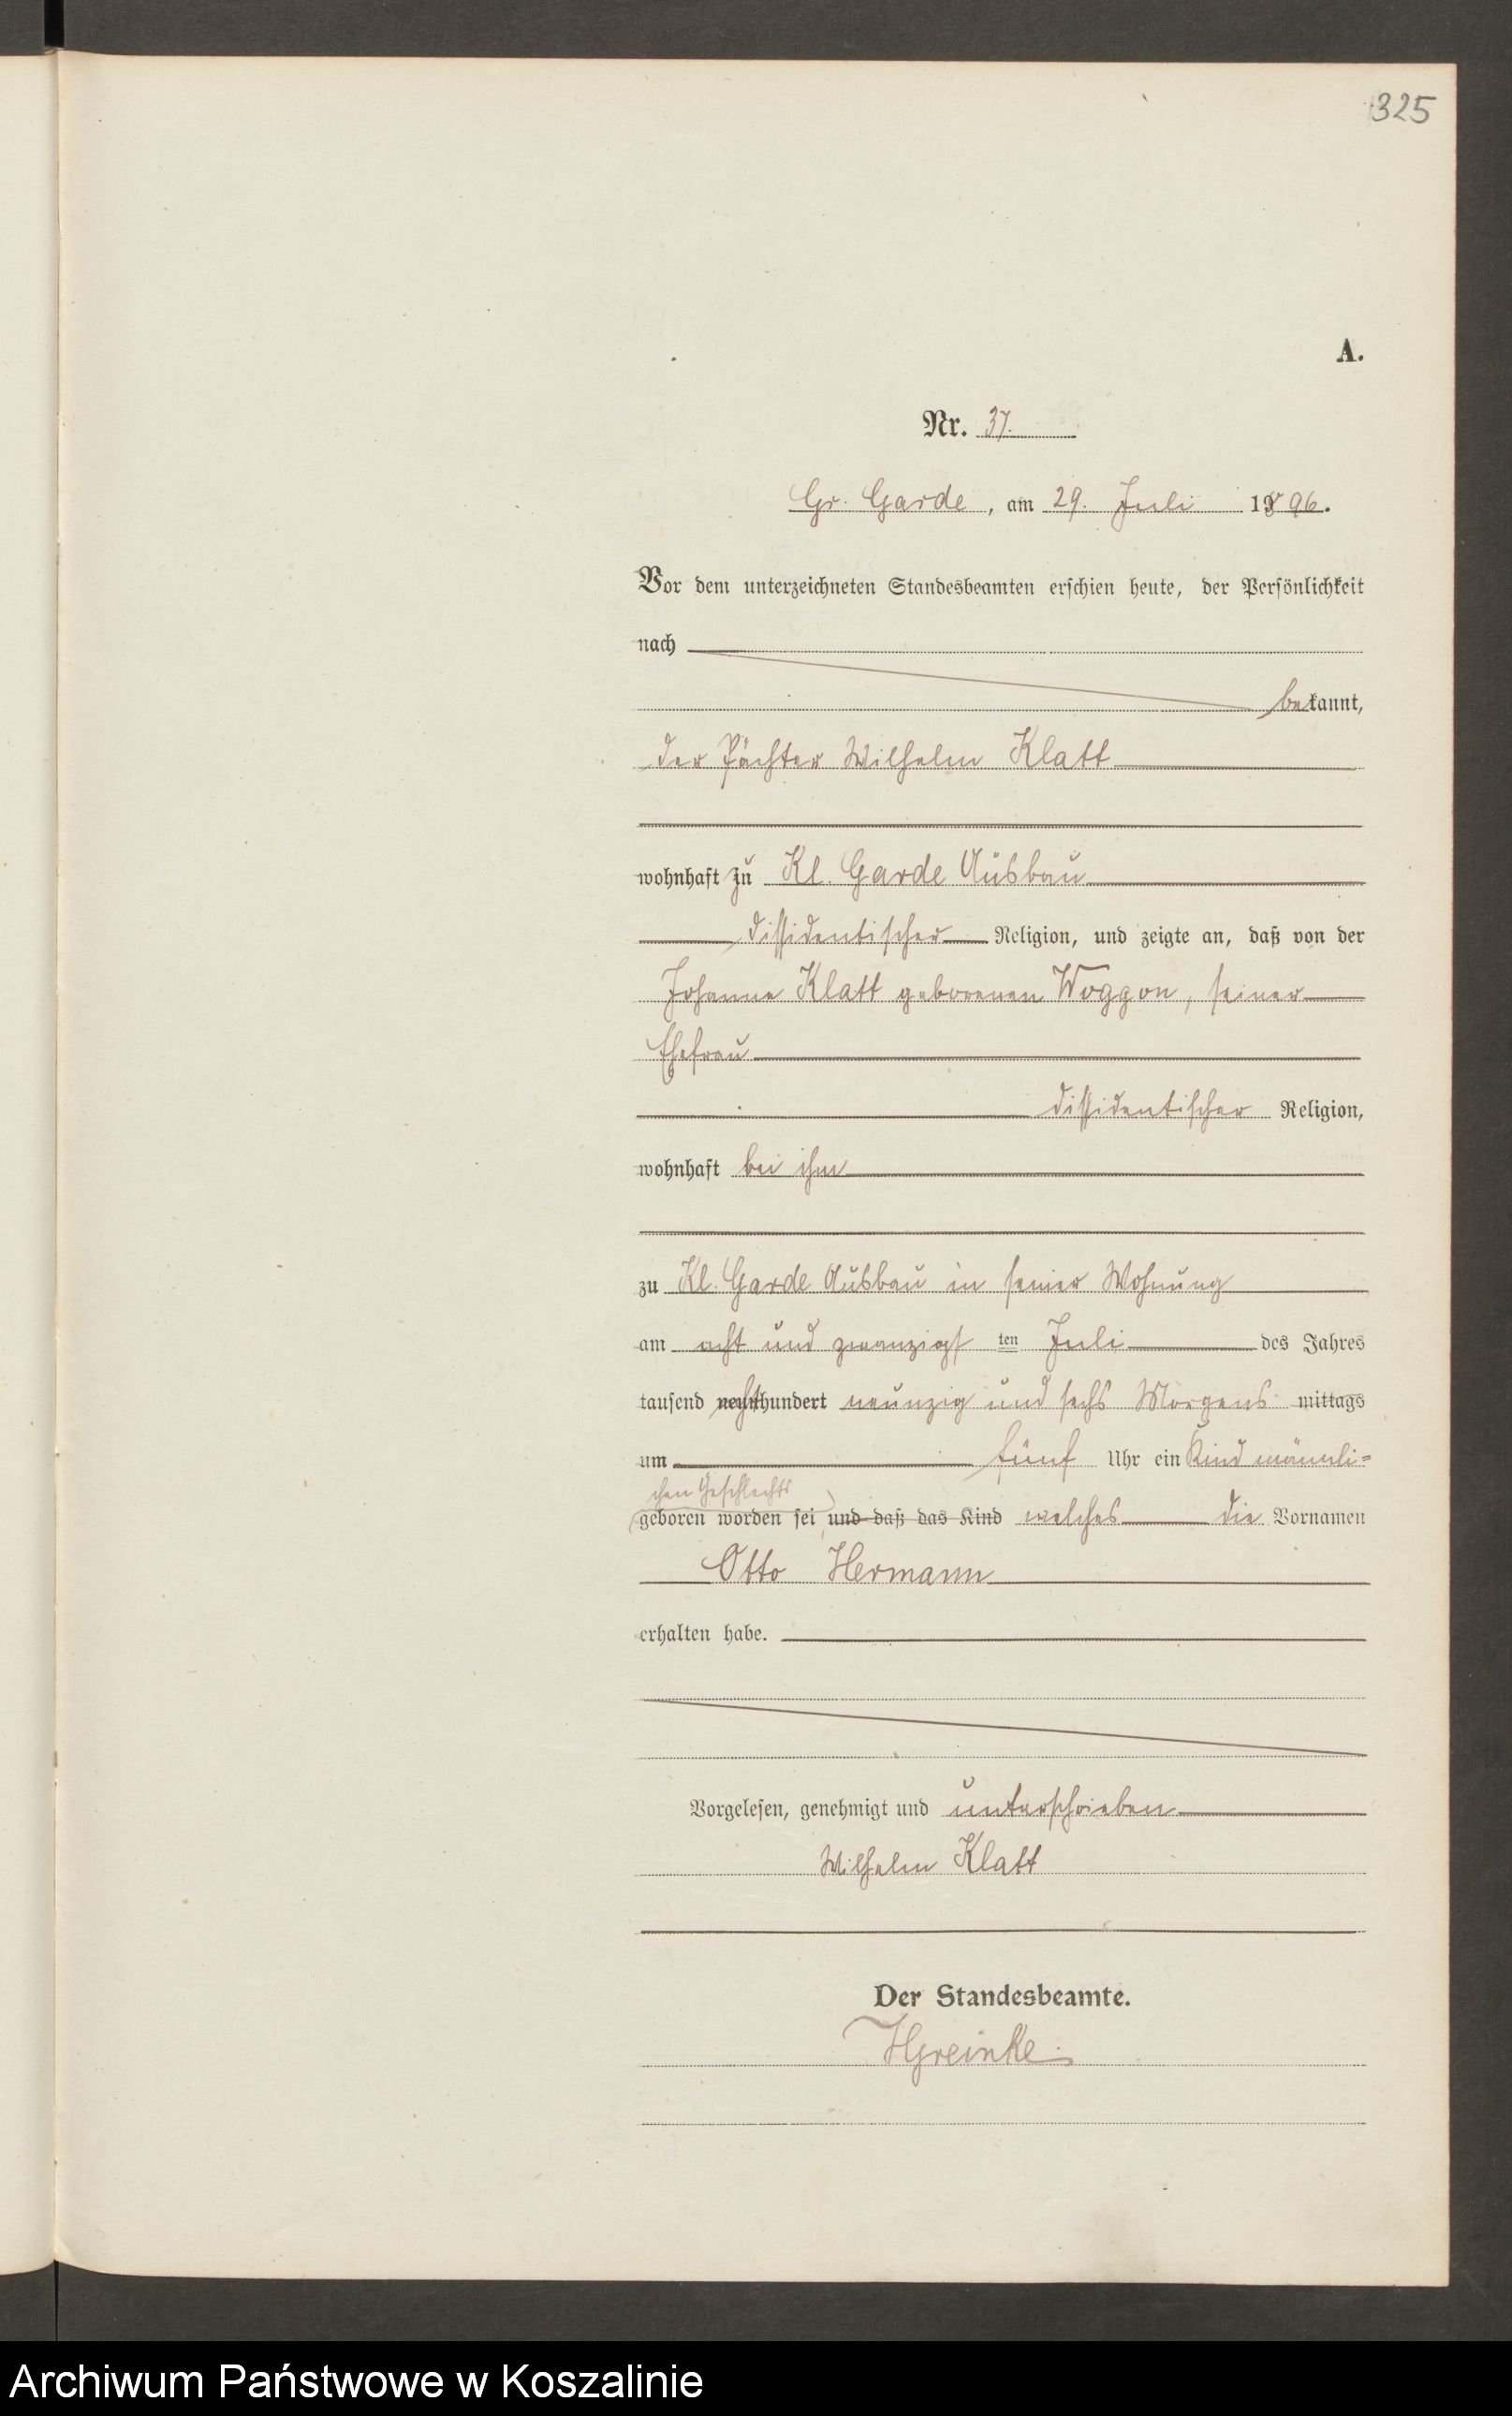 325
A.
Nr. 37.
Gr. Garde, am 29. Juli 1896.
Vor dem unterzeichneten Standesbeamten erschien heute, der Persönlichkeit
nach
bekannt,
der Pächter Wilhelm Klatt
wohnhaft zu Kl. Garde Ausbau
dissidentischer Religion, und zeigte an, daß von der
Johanne Klatt geborenen Woggon, seiner
Ehefrau
dissidentischer Religion,
wohnhaft bei ihm
zu Kl. Garde Ausbau in seiner Wohnung
am acht und zwanzigs ten Juli des Jahres
tausend achthundert neunzig und sechs Morgens mittags
um fünf Uhr ein Kind männli=
chen Geschlechts
geboren worden sei und daß das Kind welches die Vornamen
Otto Hermann
erhalten habe.
Vorgelesen, genehmigt und unterschrieben
Wilhelm Klatt
Der Standesbeamte.
HGreinke.
Archiwum Państwowe w Koszalinie